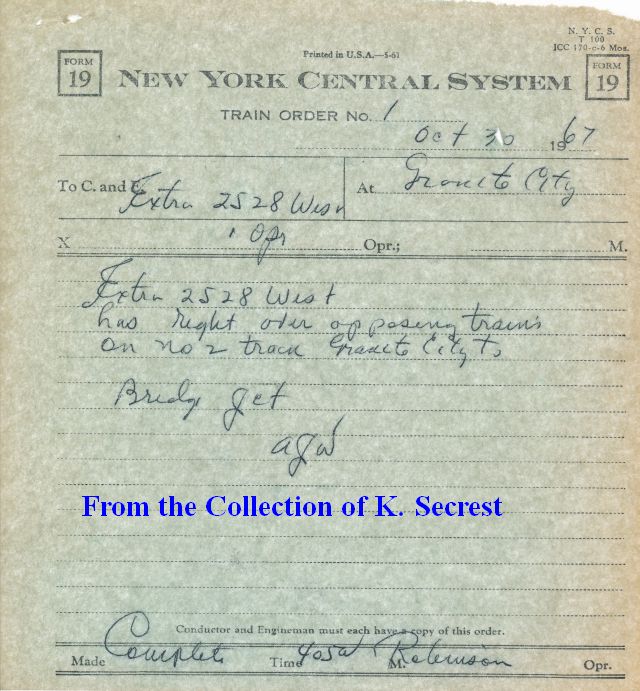 N. Y. C. S.
T 100
ICC 170-c-6 Mos.
Printed in U.S.A.—5-61
FORM 19
NEW YORK CENTRAL SYSTEM
FORM 19
TRAIN ORDER No. 1
Oct 30 1967
To C. and E. Extra 2528 West At Granite City
X Opr Opr.; M.
Extra 2528 West
has right over opposing trains
on no 2 track Granite City To
Bridge Jct
AJW
From the Collection of K. Secrest
Conductor and Engineman must each have a copy of this order.
Made Complete Time 405a M. Robinson Opr.